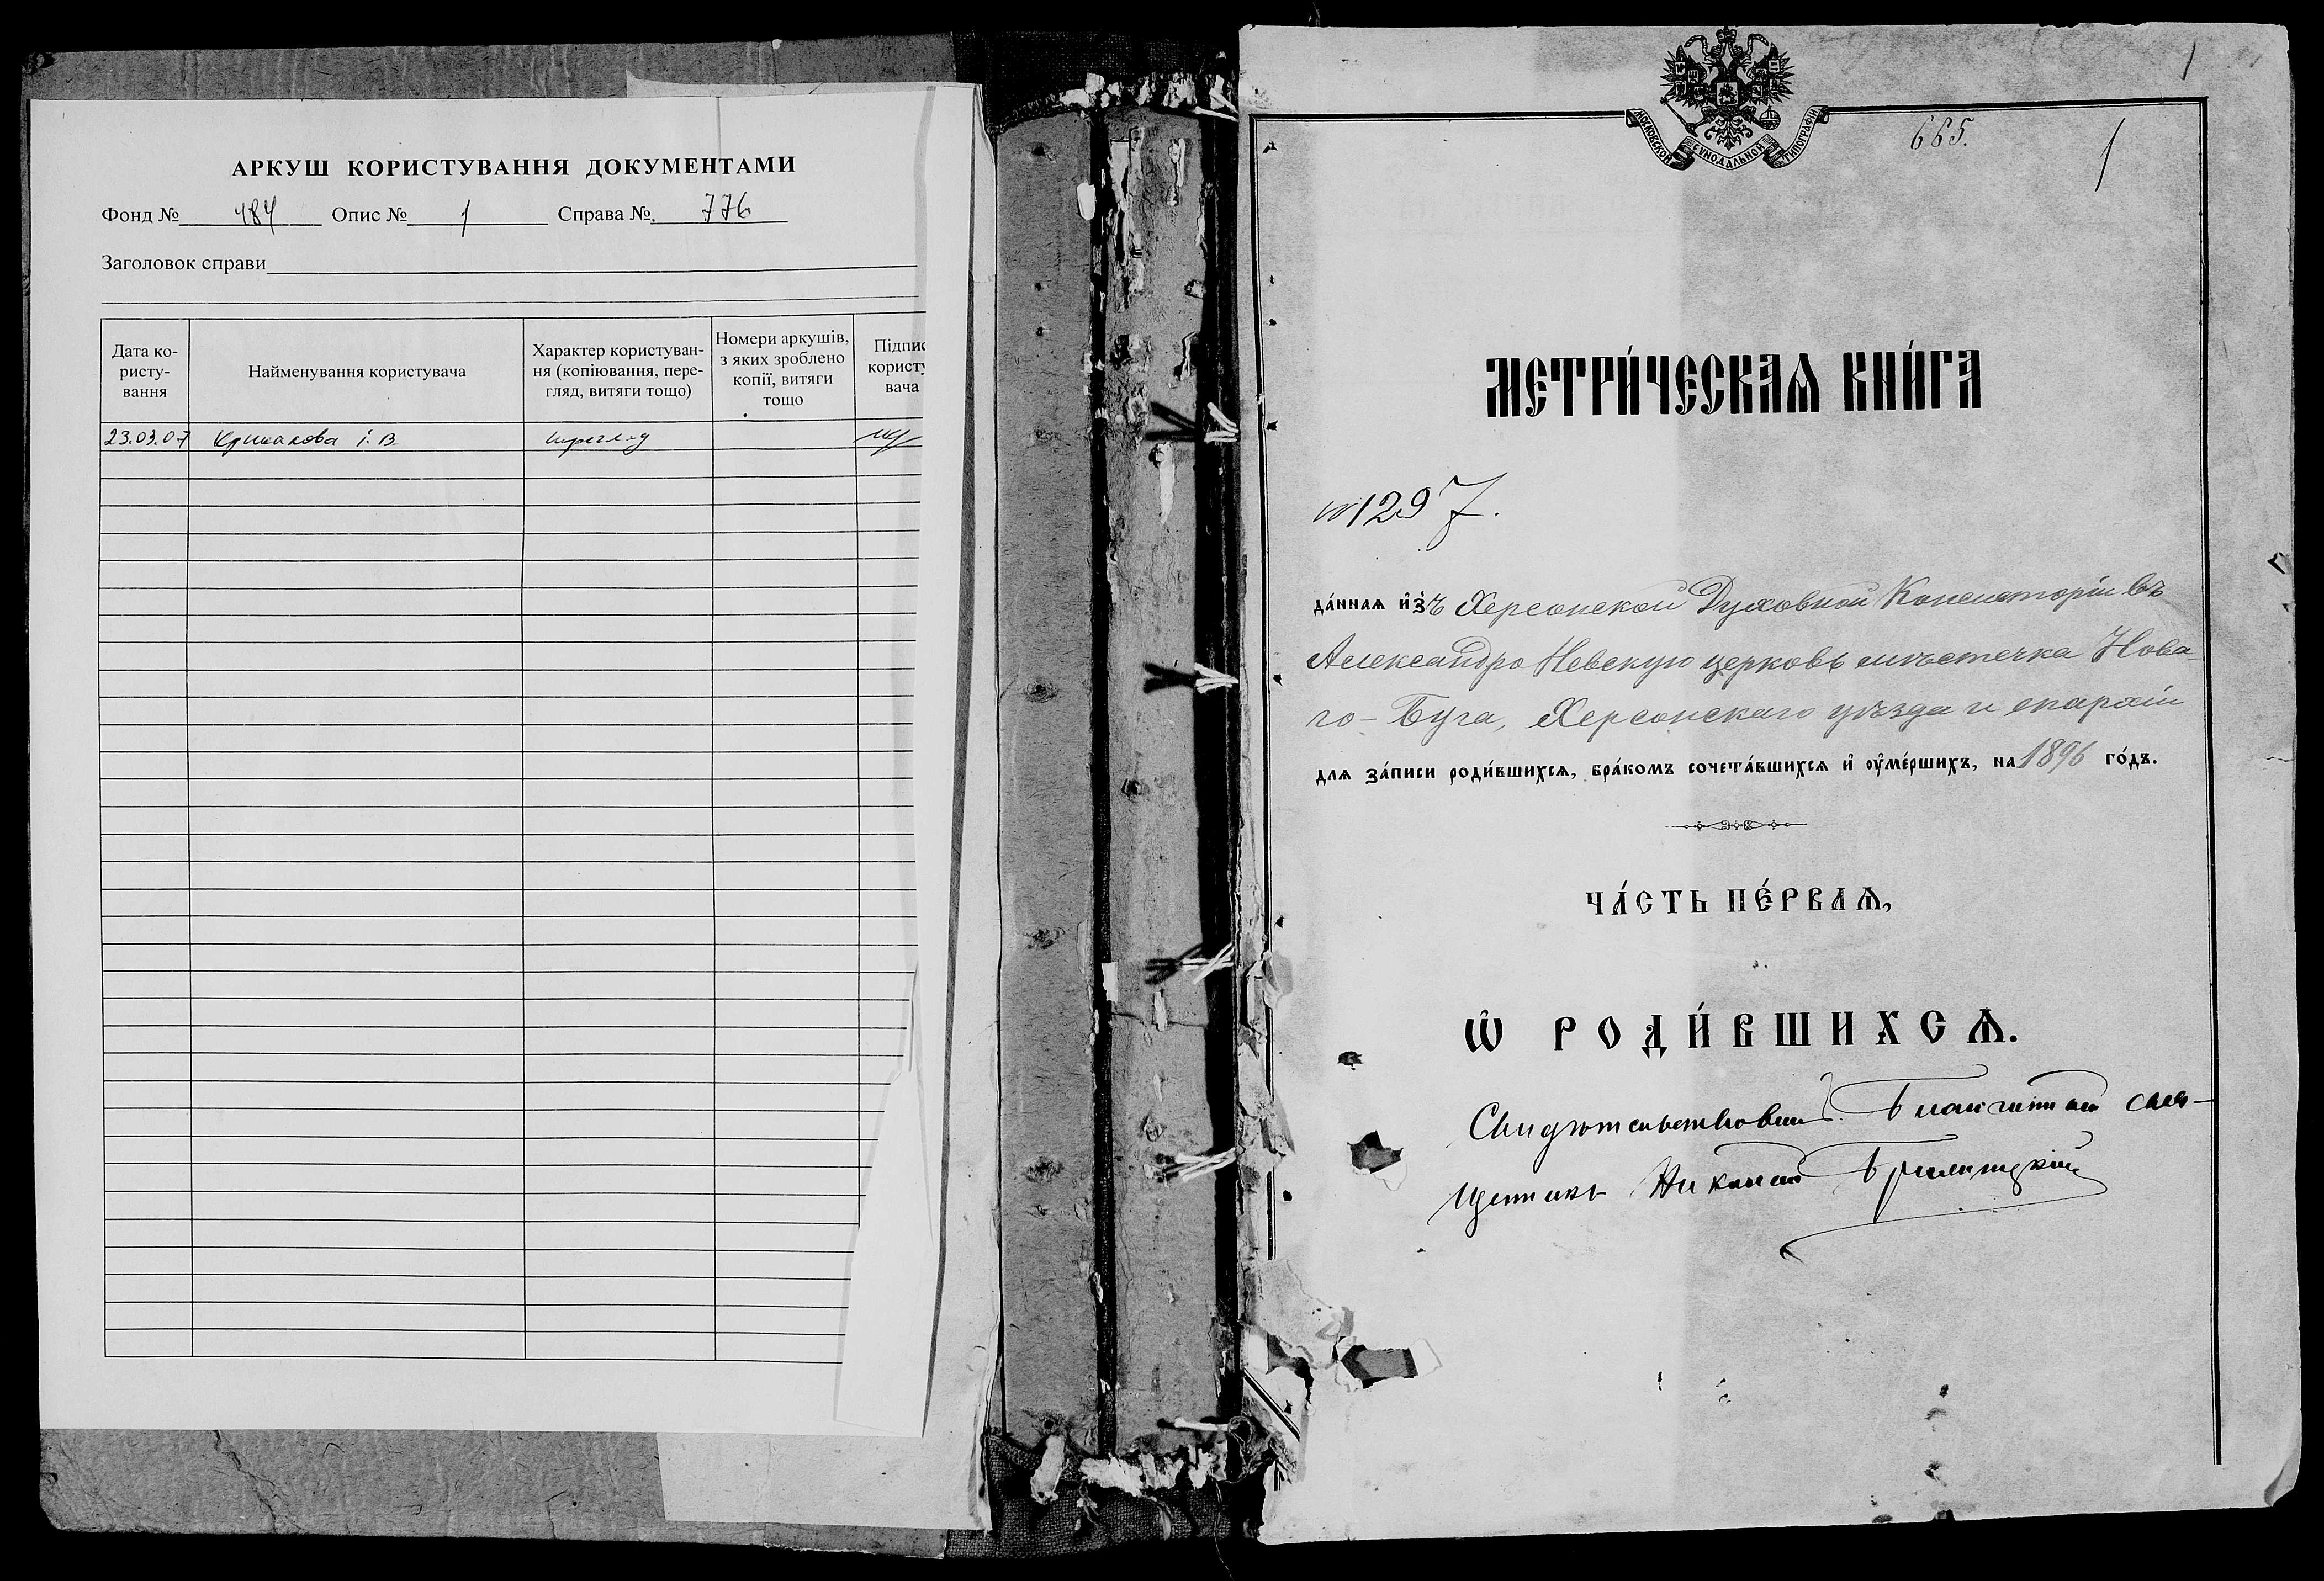 АРКУШ КОРИСТУВАННЯ ДОКУМЕНТАМИ
Фонд № 484 Опис № 1 Справа № 776
Заголовок справи
Дата ко-
ристу-
вання
Найменування користувача
Характер користуван-
ня (копіювання, пере-
гляд, витяги тощо)
Номери аркушів,
з яких зроблено
копії, витяги
тощо
Підпис
користу
вача
23.03.07 І. В. перегляд
1
МОСКОВСКОЙ СѴНОДАЛЬНОЙ ТИПОГРАФІИ
665.
1
МЕТРИ́ЧЕСКАѦ КНИ́ГА
№ 1297.
да́ннаѧ и҆з̾ъ Херсонской Духовной Консисторіи въ
Александро Невскую церковь мѣстечка Нова-
го-Буга, Херсонскаго уѣзда и епархіи
длѧ за́писи роди́вшихсѧ, бра́комъ сочета́вшихсѧ и҆ ᲂу҆ме́ршихъ, на 1896 го́дъ.
ЧА́СТЬ ПЕ́РВАѦ,
Ѡ҆ РОДИ́ВШИХСѦ.
Свидѣтельствовалъ Благочинный свя-
щенникъ